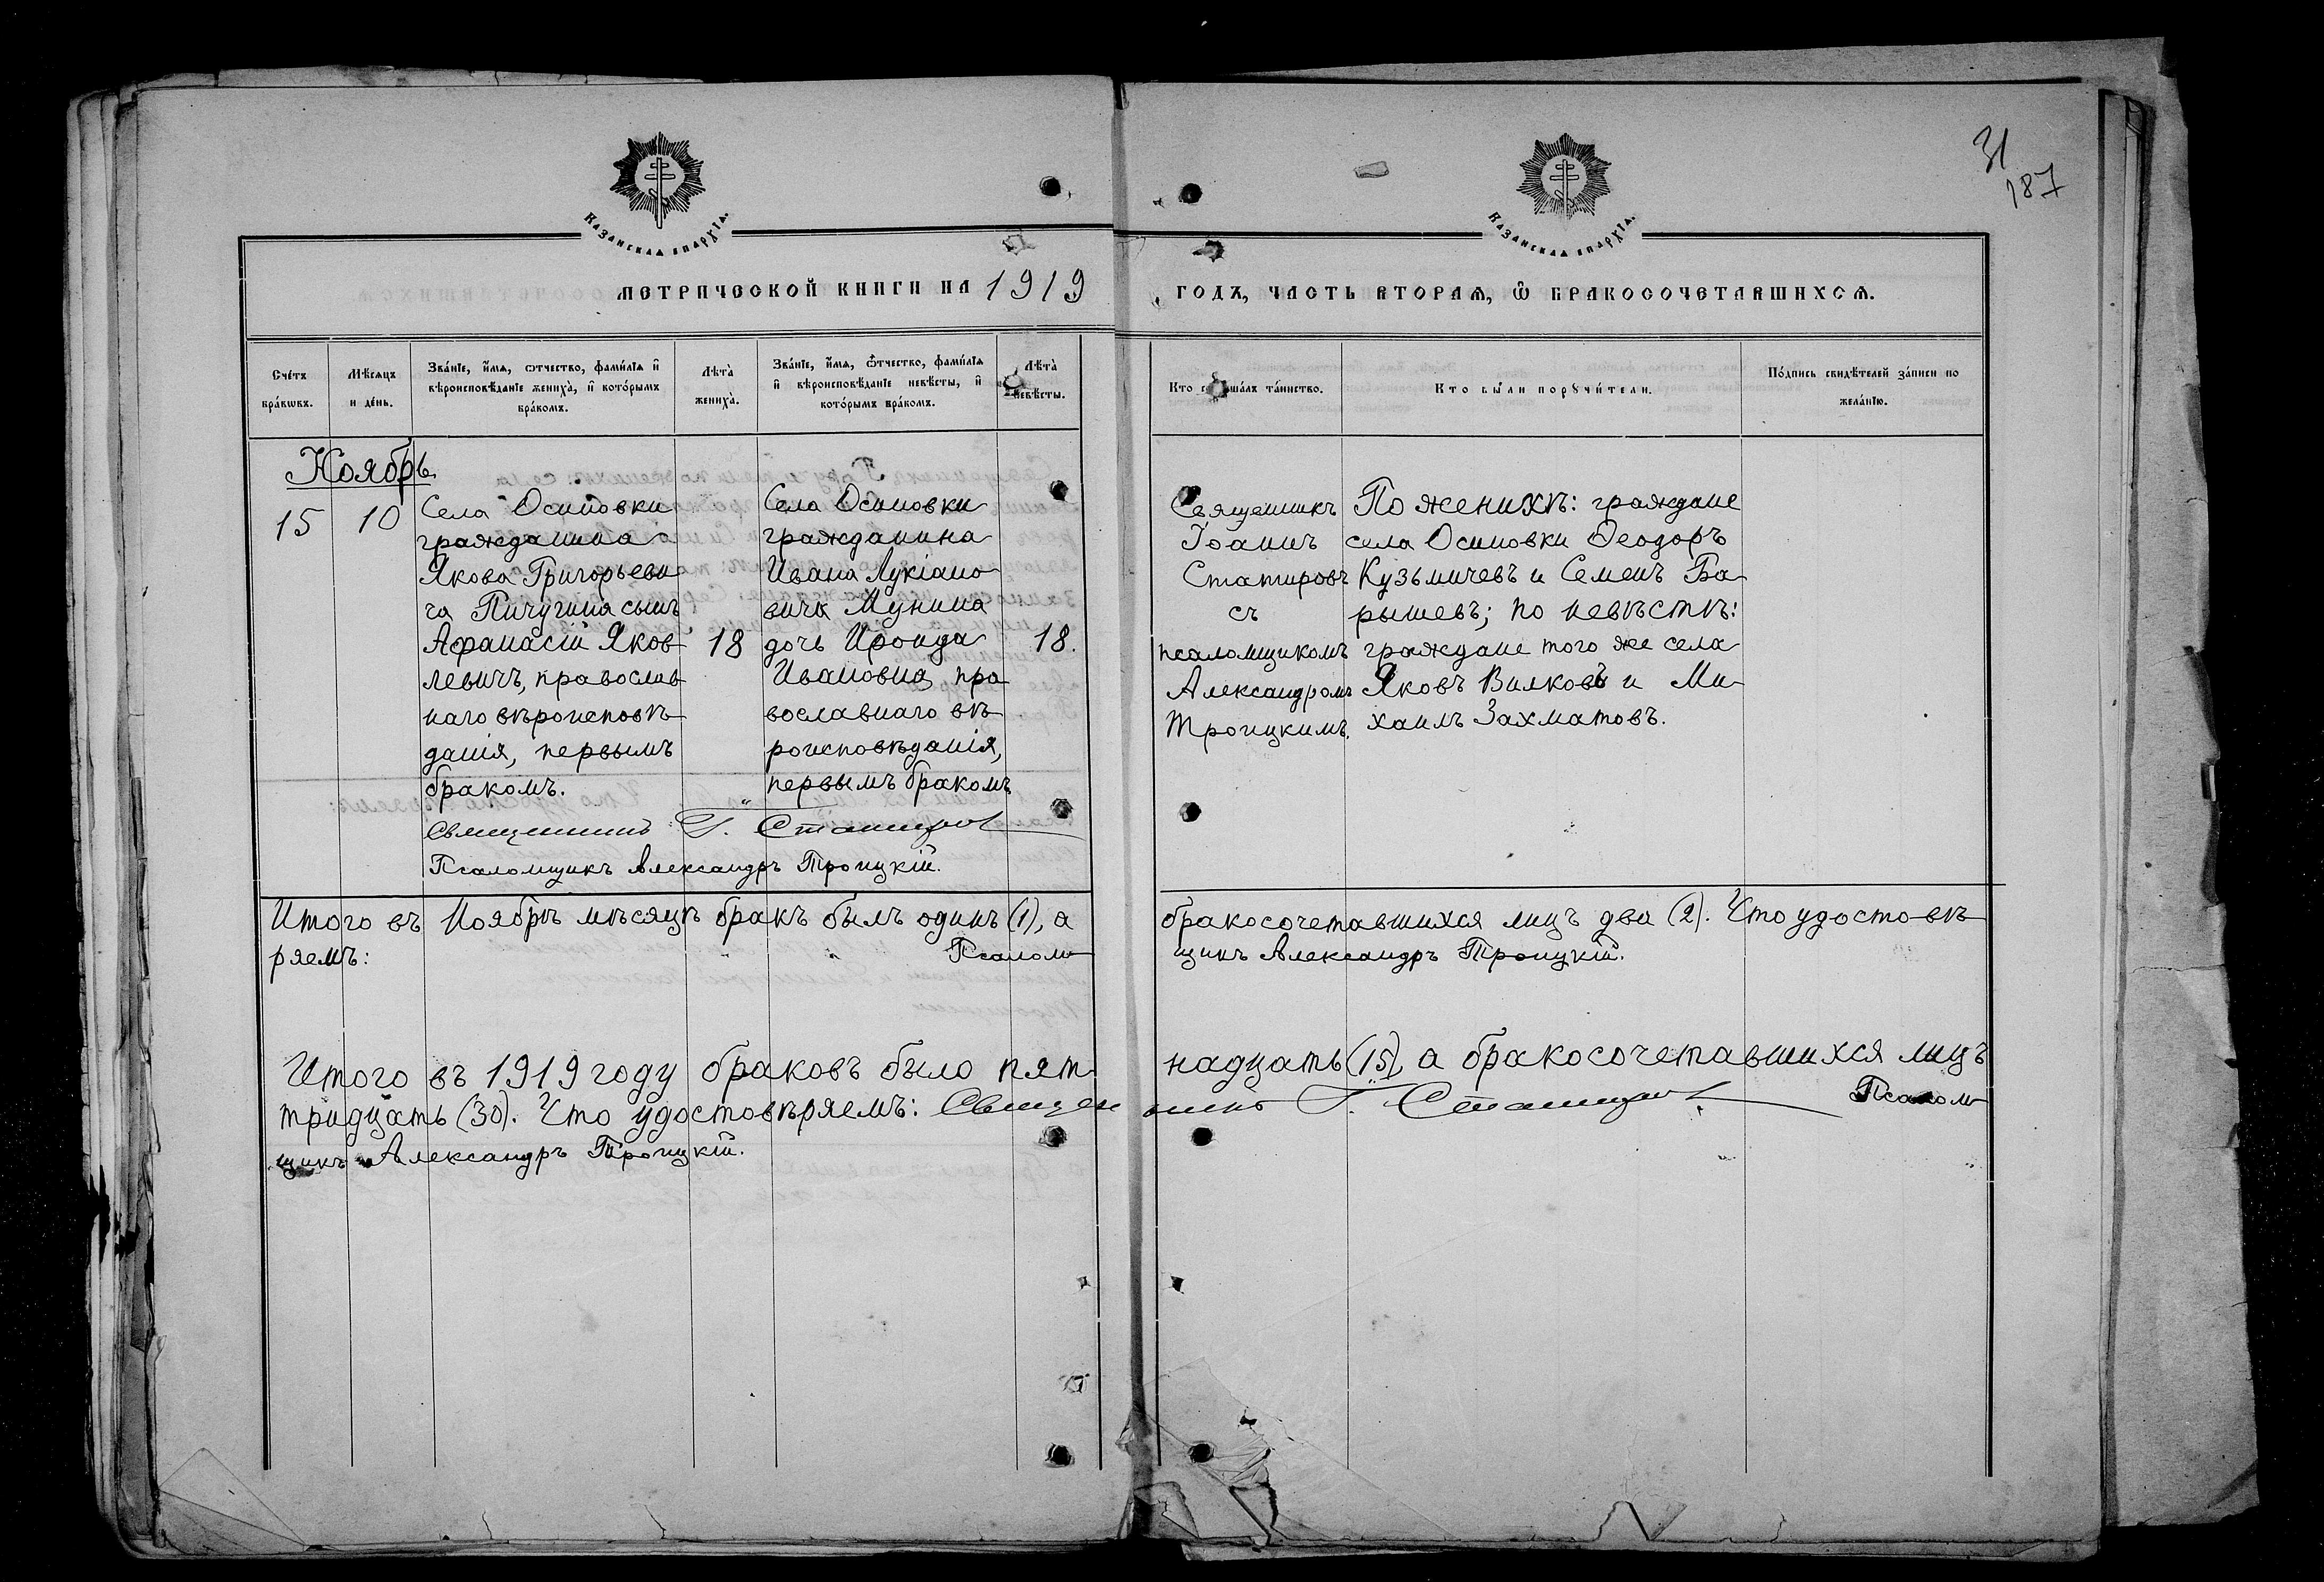 31
187
КАЗАНСКАѦ ЕПАРХІѦ.
КАЗАНСКАѦ ЕПАРХІѦ.
МЕТРИЧЕСКОЙ КНИГИ НА 1919
ГОДЪ, ЧАСТЬ ВТОРАѦ, Ѡ БРАКОСОЧЕТАВШИХСѦ.
Сче́тъ
бра́кѡвъ.
Мѣ́сѧцъ
и де́нь.
Зва́нїе, и҆́мѧ, ѻтчество, фами́лїѧ и҆
вѣроисповѣ́данїе жениха̀, и҆ кото́рымъ
бра́комъ.
Лѣта̀
жениха̀.
Зва́нїе, и҆́мѧ, ѻ҆́тчество, фами́лїѧ
и҆ вѣроисповѣ́данїе невѣ́сты, и҆
кото́рымъ бра́комъ.
Лѣта̀
невѣ́сты.
Кто соверша́лъ та́инство.
Кто бы́ли порꙋчи́тели.
По́дпись свидѣ́телей за́писи по
жела́нїю.
Ноябрь
15
10
Села Осиновки
гражданина
Якова Григорьеви
ча Пичугина сынъ
Афанасій Яков
левичъ, православ
наго вѣроисповѣ
данія, первымъ
бракомъ.
18
Села Осиновки
гражданина
Ивана Лукіано
вича Мунина
дочь Ироида
Ивановна, пра
вославнаго вѣ
роисповѣданія,
первымъ бракомъ
18.
Священникъ
Іоаннъ
Статировъ
съ
псаломщикомъ
Александромъ
Троицкимъ.
По женихѣ: граждане
села Осиновки Ѳеодоръ
Кузьмичевъ и Семенъ Ба
рышевъ; по невѣстѣ:
граждане того же села
Яковъ Вилковъ и Ми
хаилъ Захматовъ.
Священникъ І. Статиров
Псаломщикъ Александръ Троицкій.
Итого въ Ноябрѣ мѣсяцѣ бракъ былъ одинъ (1), а бракосочетавшихся лицъ два (2). Что удостовѣ
ряемъ: Псалом щикъ Александръ Троицкій.
Итого въ 1919 году браковъ было пят надцать (15), а бракосочетавшихся лицъ
тридцать (30). Что удостовѣряемъ: Священ никъ І. Статиров Псалом
щикъ Александръ Троицкій.